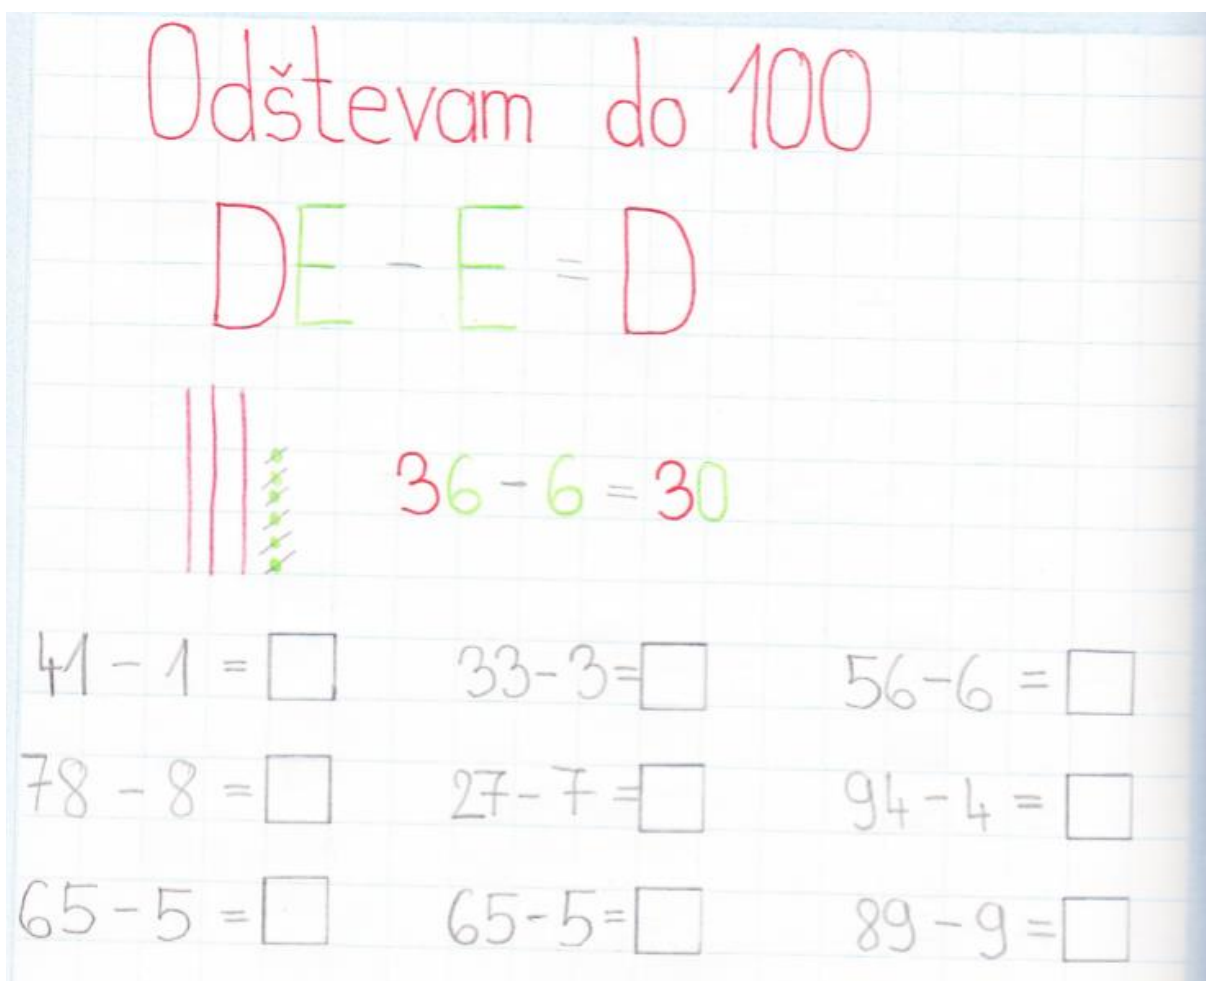 Odštevam do 100
DE - E = D
36 - 6 = 30
41 - 1 = 33 - 3 = 56 - 6 =
78 - 8 = 27 - 7 = 94 - 4 =
65 - 5 = 65 - 5 = 89 - 9 =